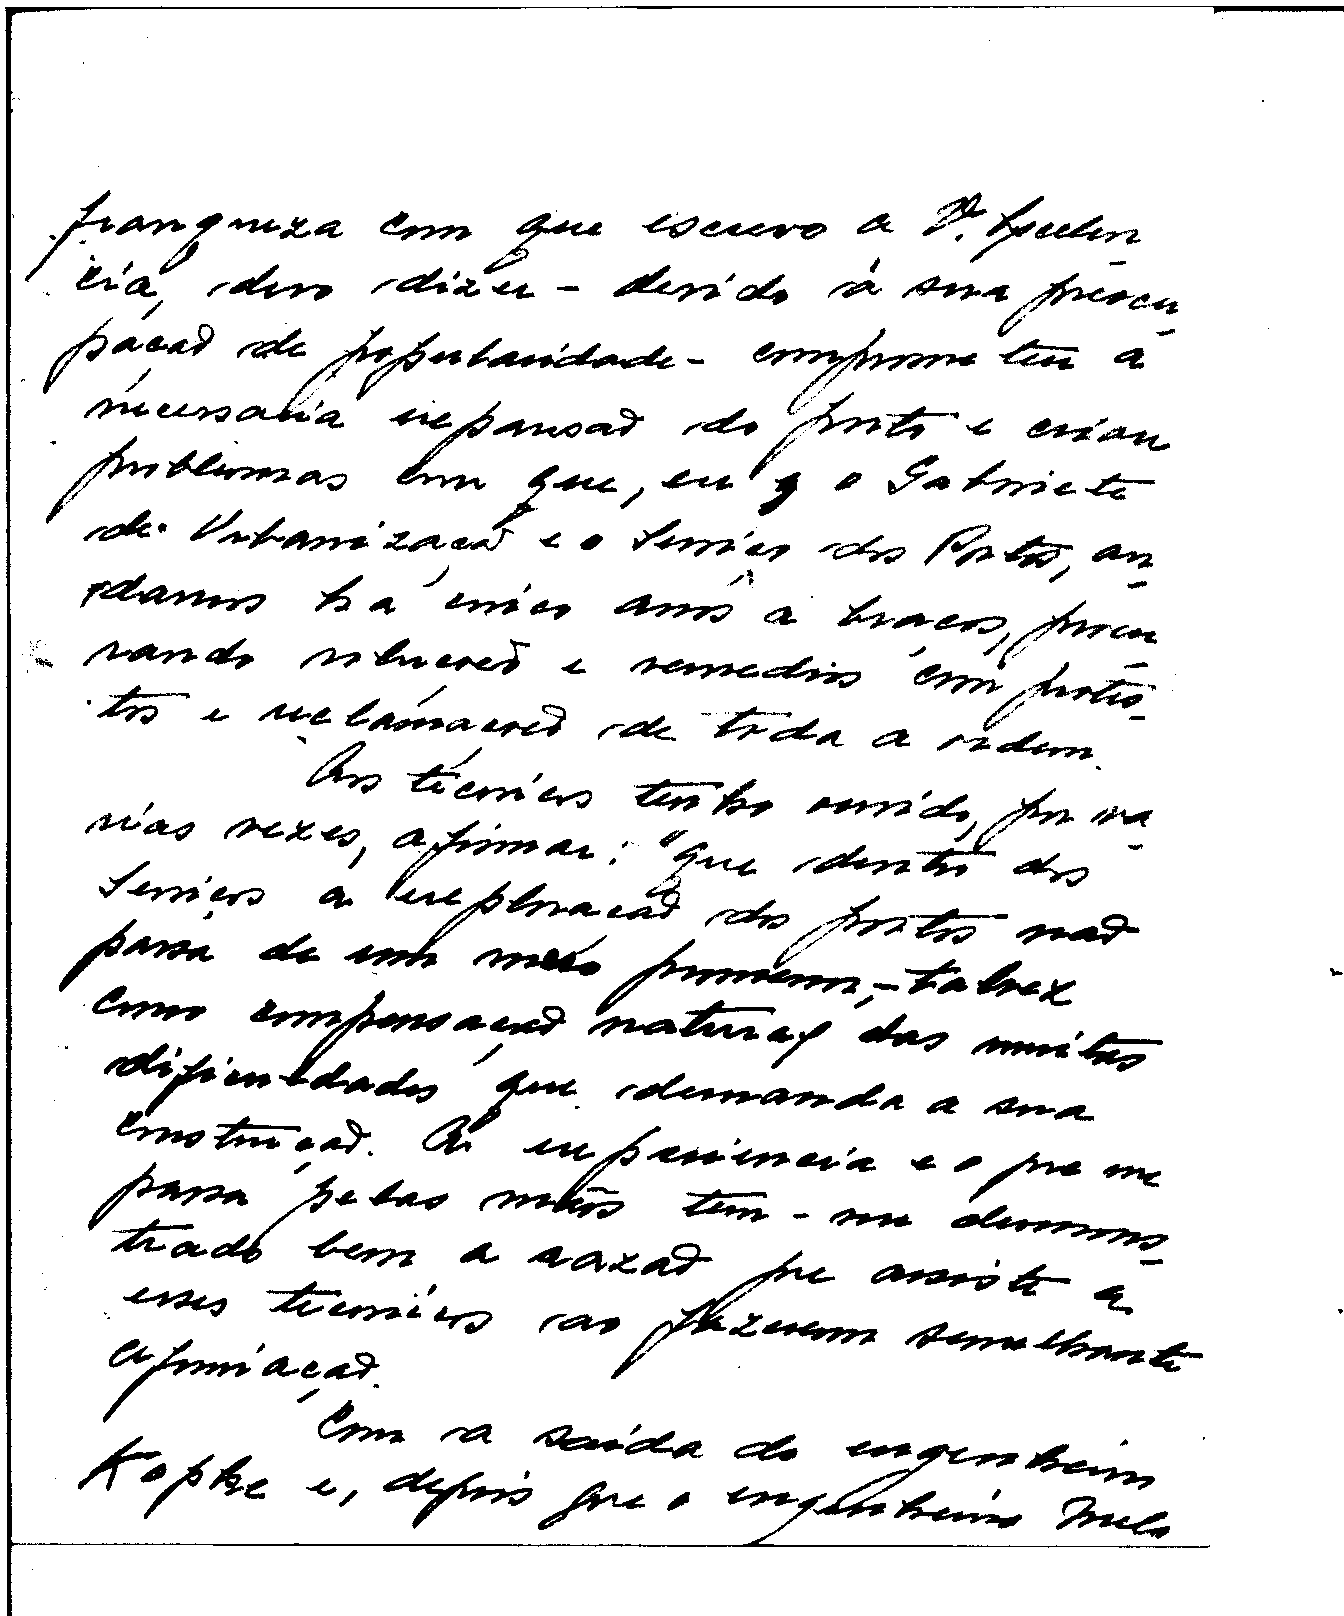 franqueza com que escrevo a V. Excelen-
cia, devo dizer - devido à sua preocu-
pação de popularidade - comprometeu a
necessaria expansão do porto e criou
problemas em que, eu e o Gabinete
de Urbanização e o Serviço dos Portos, an-
damos há cinco anos a braços, procu-
rando soluções e remedios com protes-
tos e reclamações de toda a ordem.
Aos técnicos tenho ouvido, por va-
rias vezes, afirmar: "que dentro dos
Serviços a exploração dos portos não
passa de um mero pormenor, - talvez
como compensação natural das muitas
dificuldades que demanda a sua
construção. A experiencia e o que me
passa pelas mãos tem-me demons-
trado bem a razão que assiste a
esses técnicos ao fazerem semelhante
afirmação.
Com a saída do engenheiro
Kopke e, depois que o engenheiro Melo